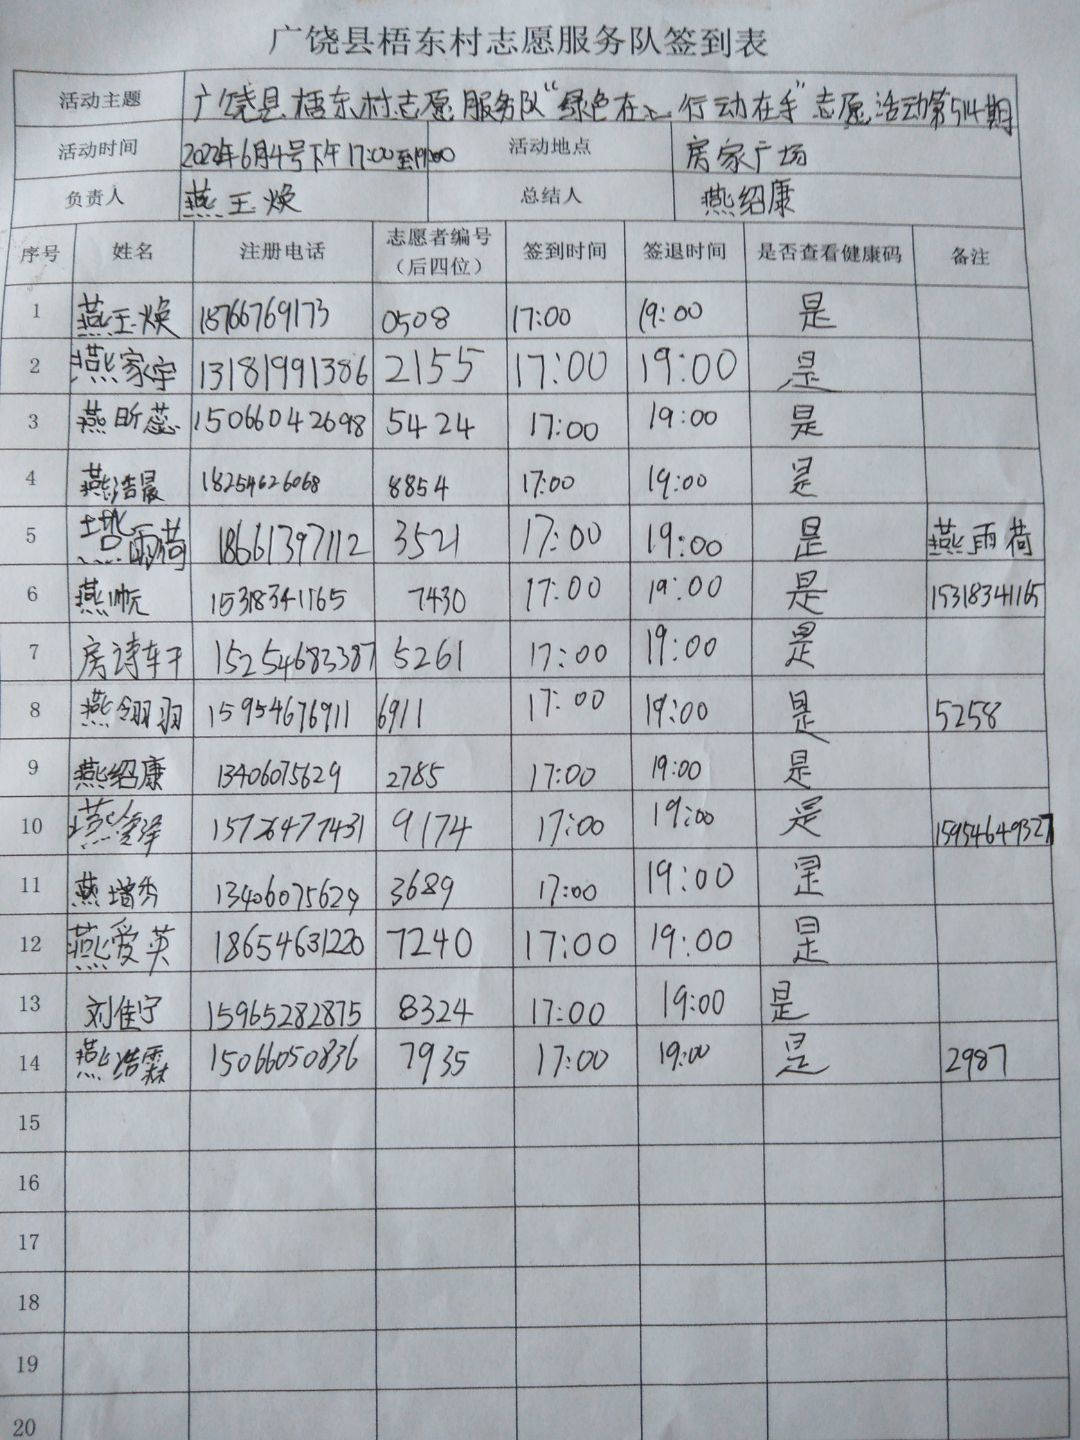 广饶县梧东村志愿服务队签到表
活动主题 广饶县梧东村志愿服务队“绿色在心 行动在手”志愿活动第514期
活动时间 2022年6月4号下午17:00至19:00 活动地点 房家广场
负责人 燕玉焕 总结人 燕绍康
序号 姓名 注册电话 志愿者编号（后四位） 签到时间 签退时间 是否查看健康码 备注
1 燕玉焕 18766769173 0508 17:00 19:00 是
2 燕家宇 13181991386 2155 17:00 19:00 是
3 燕昕蕊 15066042698 5424 17:00 19:00 是
4 燕浩晨 18254626068 8854 17:00 19:00 是
5 燕雨荷 18661397112 3521 17:00 19:00 是 燕雨荷
6 燕 15318341165 7430 17:00 19:00 是 15318341165
7 房诗 15254683387 5261 17:00 19:00 是
8 燕翎羽 15954676911 6911 17:00 19:00 是 5258
9 燕绍康 13406075629 2785 17:00 19:00 是
10 燕 15726477431 9174 17:00 19:00 是 15954649327
11 燕增秀 13406075629 3689 17:00 19:00 是
12 燕爱英 18654631220 7240 17:00 19:00 是
13 刘佳宁 15965282875 8324 17:00 19:00 是
14 燕浩霖 15066050836 7935 17:00 19:00 是 2987
15
16
17
18
19
20